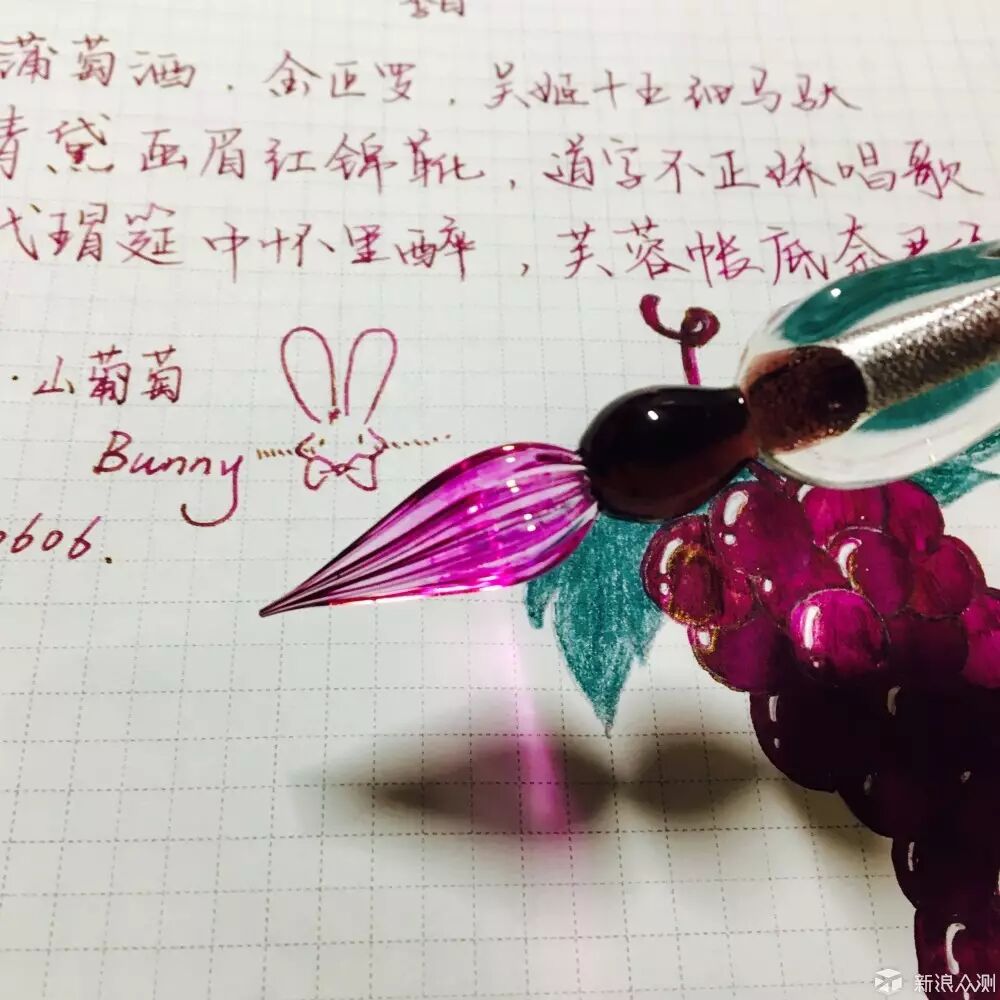 葡萄酒，金叵罗，吴姬十五细马驮
青黛画眉红锦靴，道字不正娇唱歌
玳瑁筵中怀里醉，芙蓉帐底奈君
·山葡萄
Bunny
0606.
新浪众测